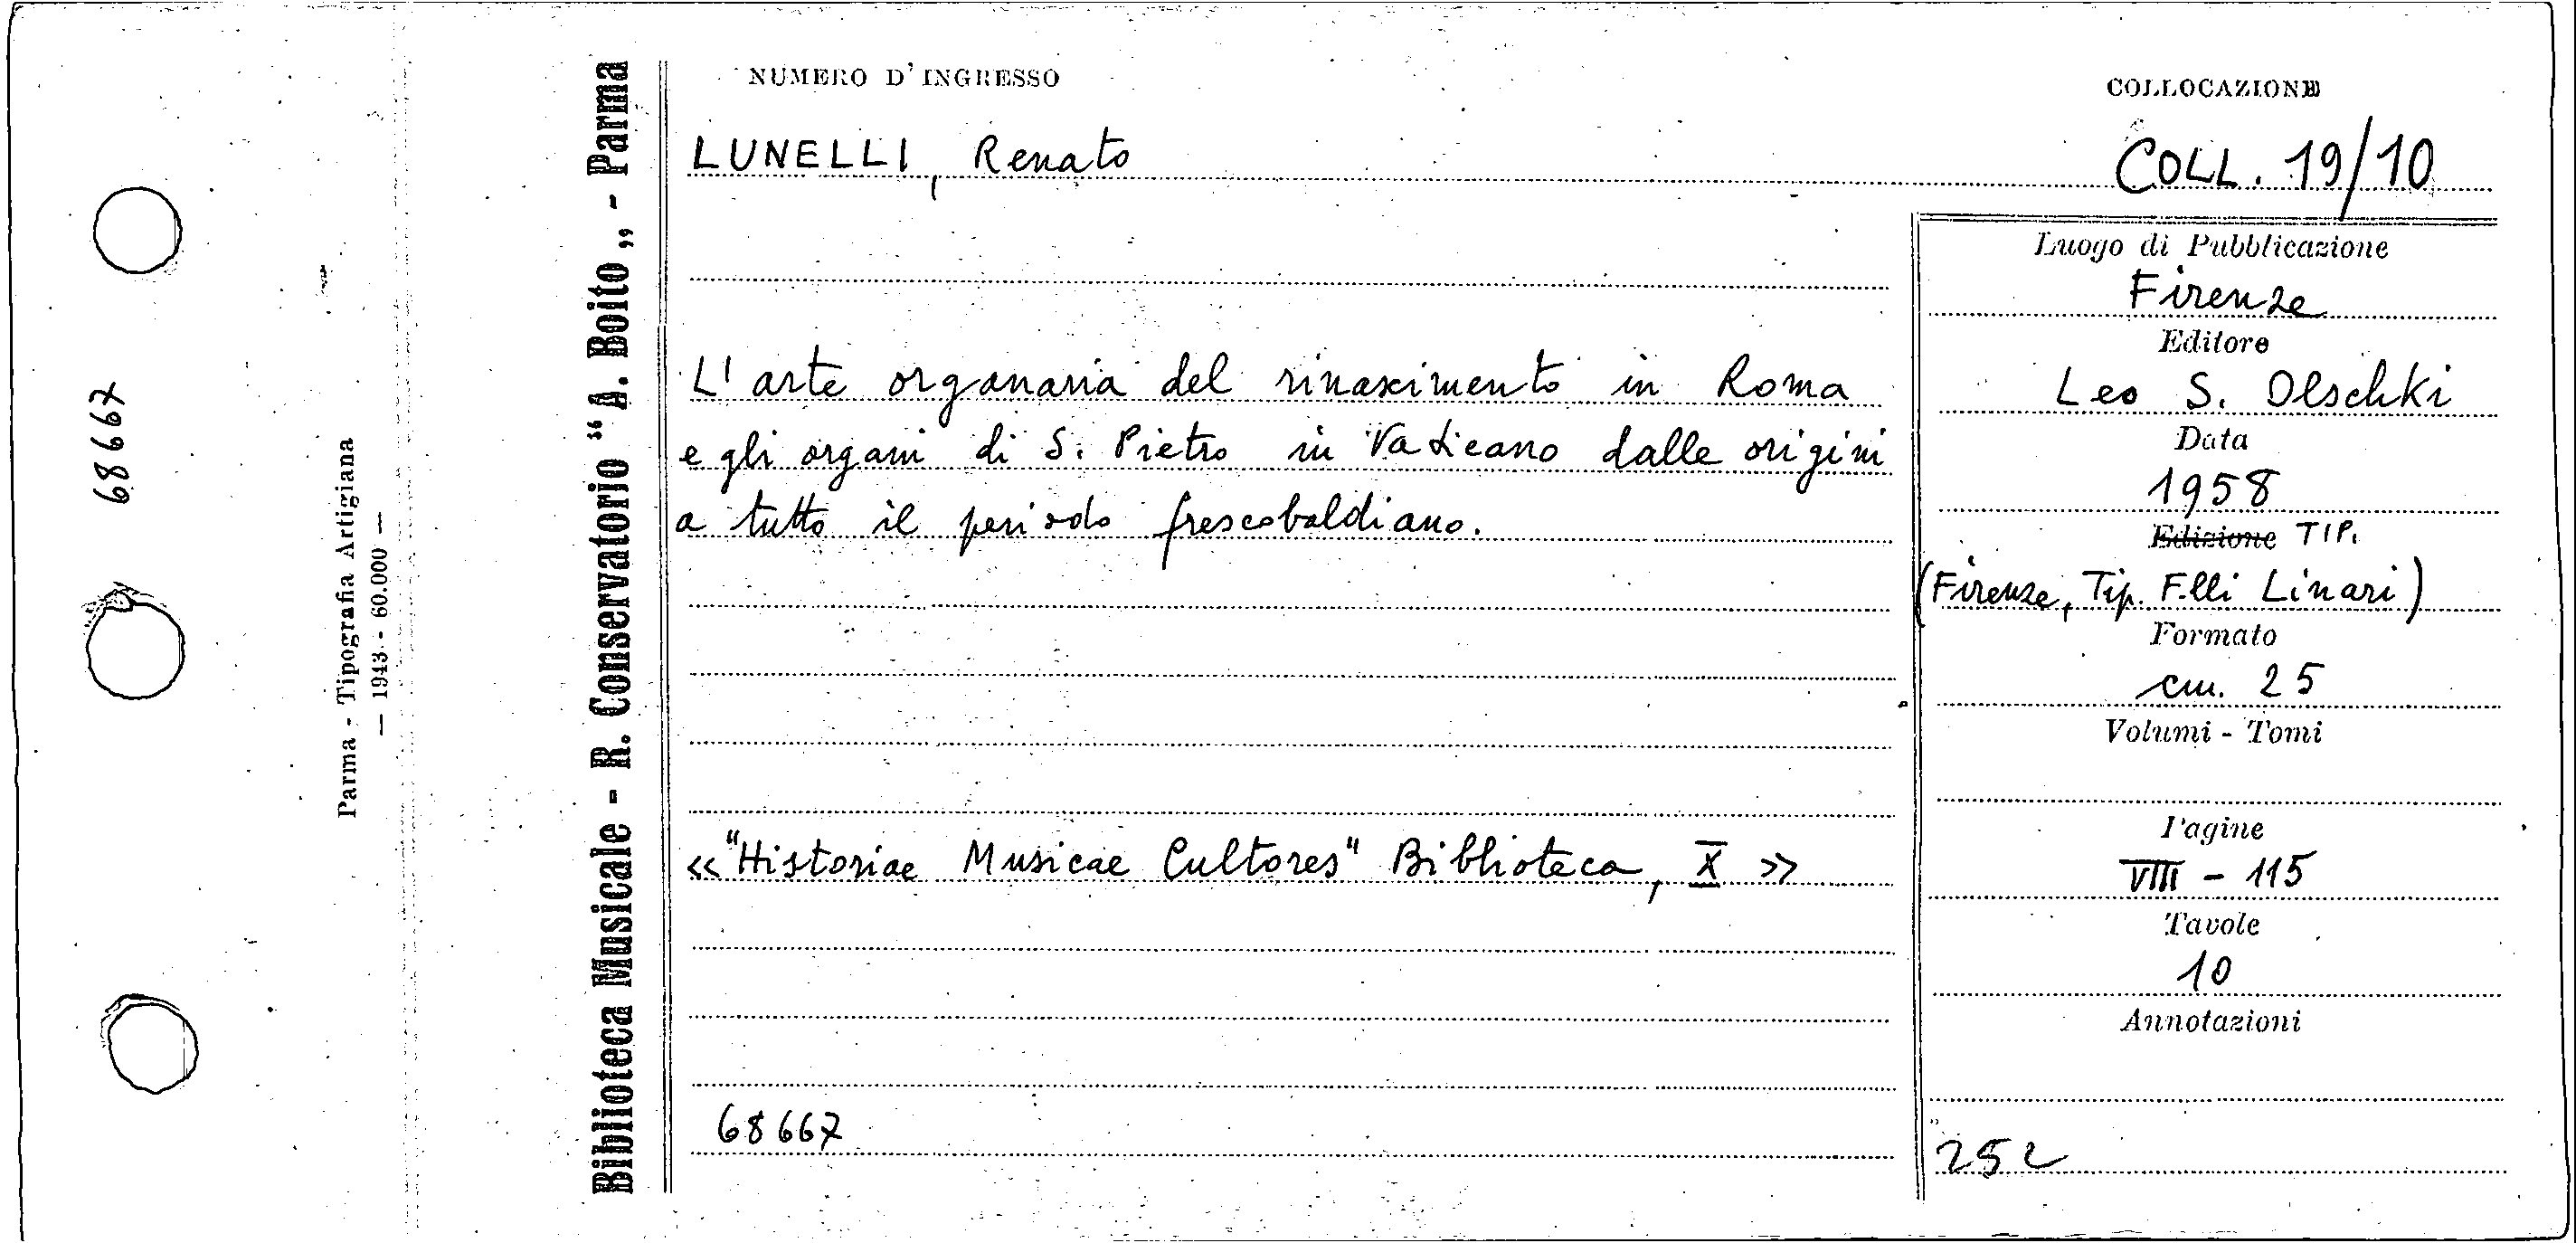 68667
Parma - Tipografia Artigiana
— 1943 - 60.000 —
Biblioteca Musicale - R. Conservatorio “A. Boito„ - Parma
NUMERO D'INGRESSO
COLLOCAZIONE
LUNELLI, Renato
COLL. 19/10
L'arte organaria del rinascimento in Roma
e gli organi di S. Pietro in Vaticano dalle origini
a tutto il periodo frescobaldiano.
«"Historiae Musicae Cultores" Biblioteca, X»
68667
Luogo di Pubblicazione
Firenze
Editore
Leo S. Olschki
Data
1958
Edizione TIP.
(Firenze, Tip. F.lli Linari)
Formato
cm. 25
Volumi - Tomi
Pagine
VIII - 115
Tavole
10
Annotazioni
252